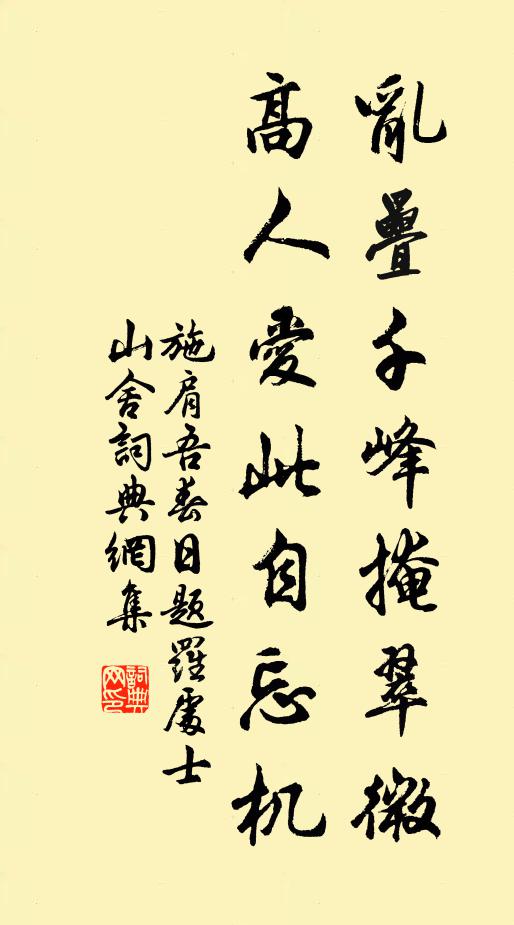 亂疊千峰掩翠微
高人愛此自忘机
施肩吾春日題羅處士
山舍詞典網集
詞典
网印